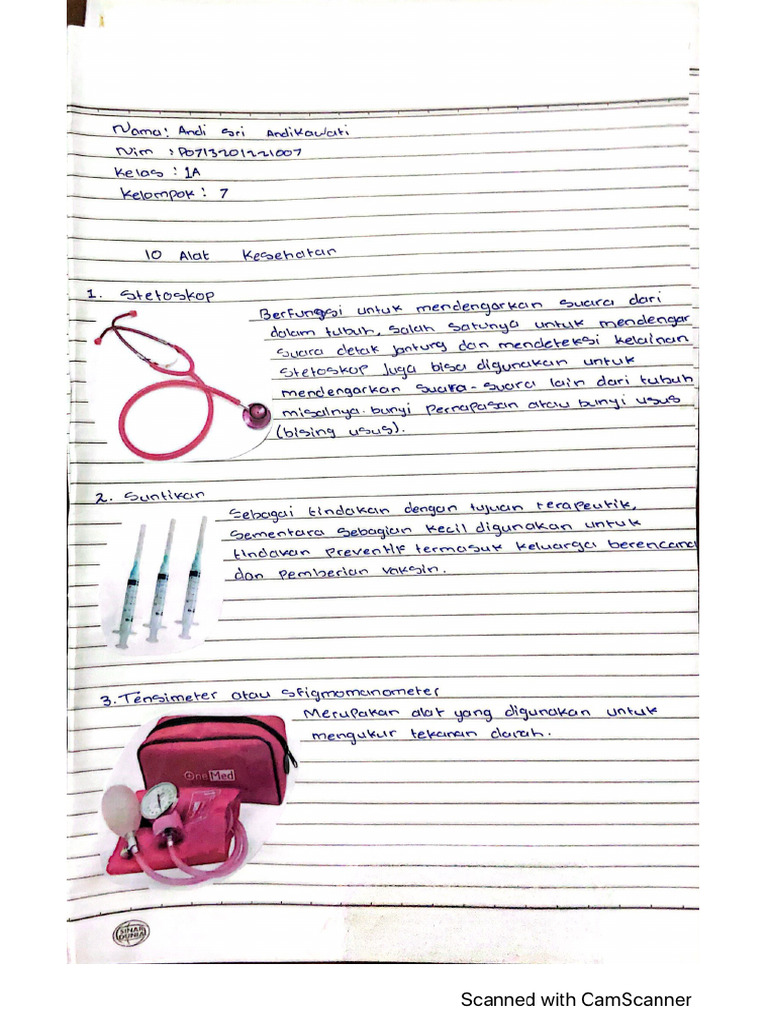 Nama: Andi Sri Andikawati
Nim : P0713201221007
Kelas : 1A
Kelompok : 7
10 Alat Kesehatan
1. Stetoskop
Berfungsi untuk mendengarkan suara dari
dalam tubuh, salah satunya untuk mendengar
suara detak jantung dan mendeteksi kelainan
Stetoskop juga bisa digunakan untuk
mendengarkan suara-suara lain dari tubuh
misalnya bunyi pernapasan atau bunyi usus
(bising usus).
2. Suntikan
Sebagai tindakan dengan tujuan terapeutik,
sementara sebagian kecil digunakan untuk
tindakan preventif termasuk keluarga berencana
dan pemberian vaksin.
3. Tensimeter atau sfigmomanometer
Merupakan alat yang digunakan untuk
mengukur tekanan darah.
OneMed
SINAR
DUNIA
Scanned with CamScanner